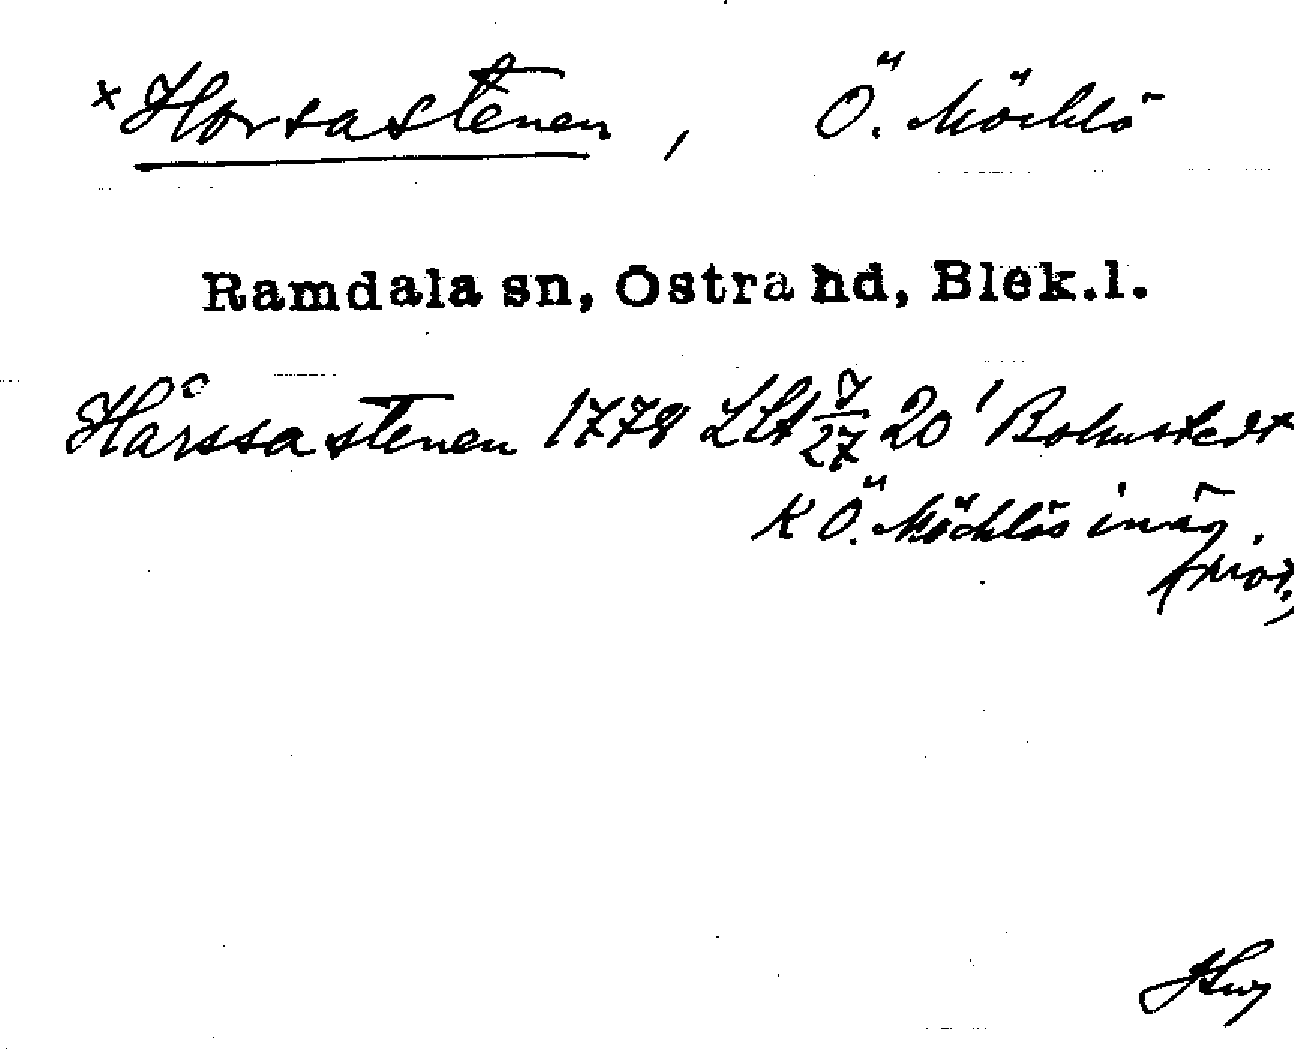 × Horsastenen, Ö. Möcklö
Ramdala sn, Östra hd, Blek.l.
Hårssastenen 1778 LSA 7/27 20¹ Bolmstedt
K Ö. Möcklös inäg.